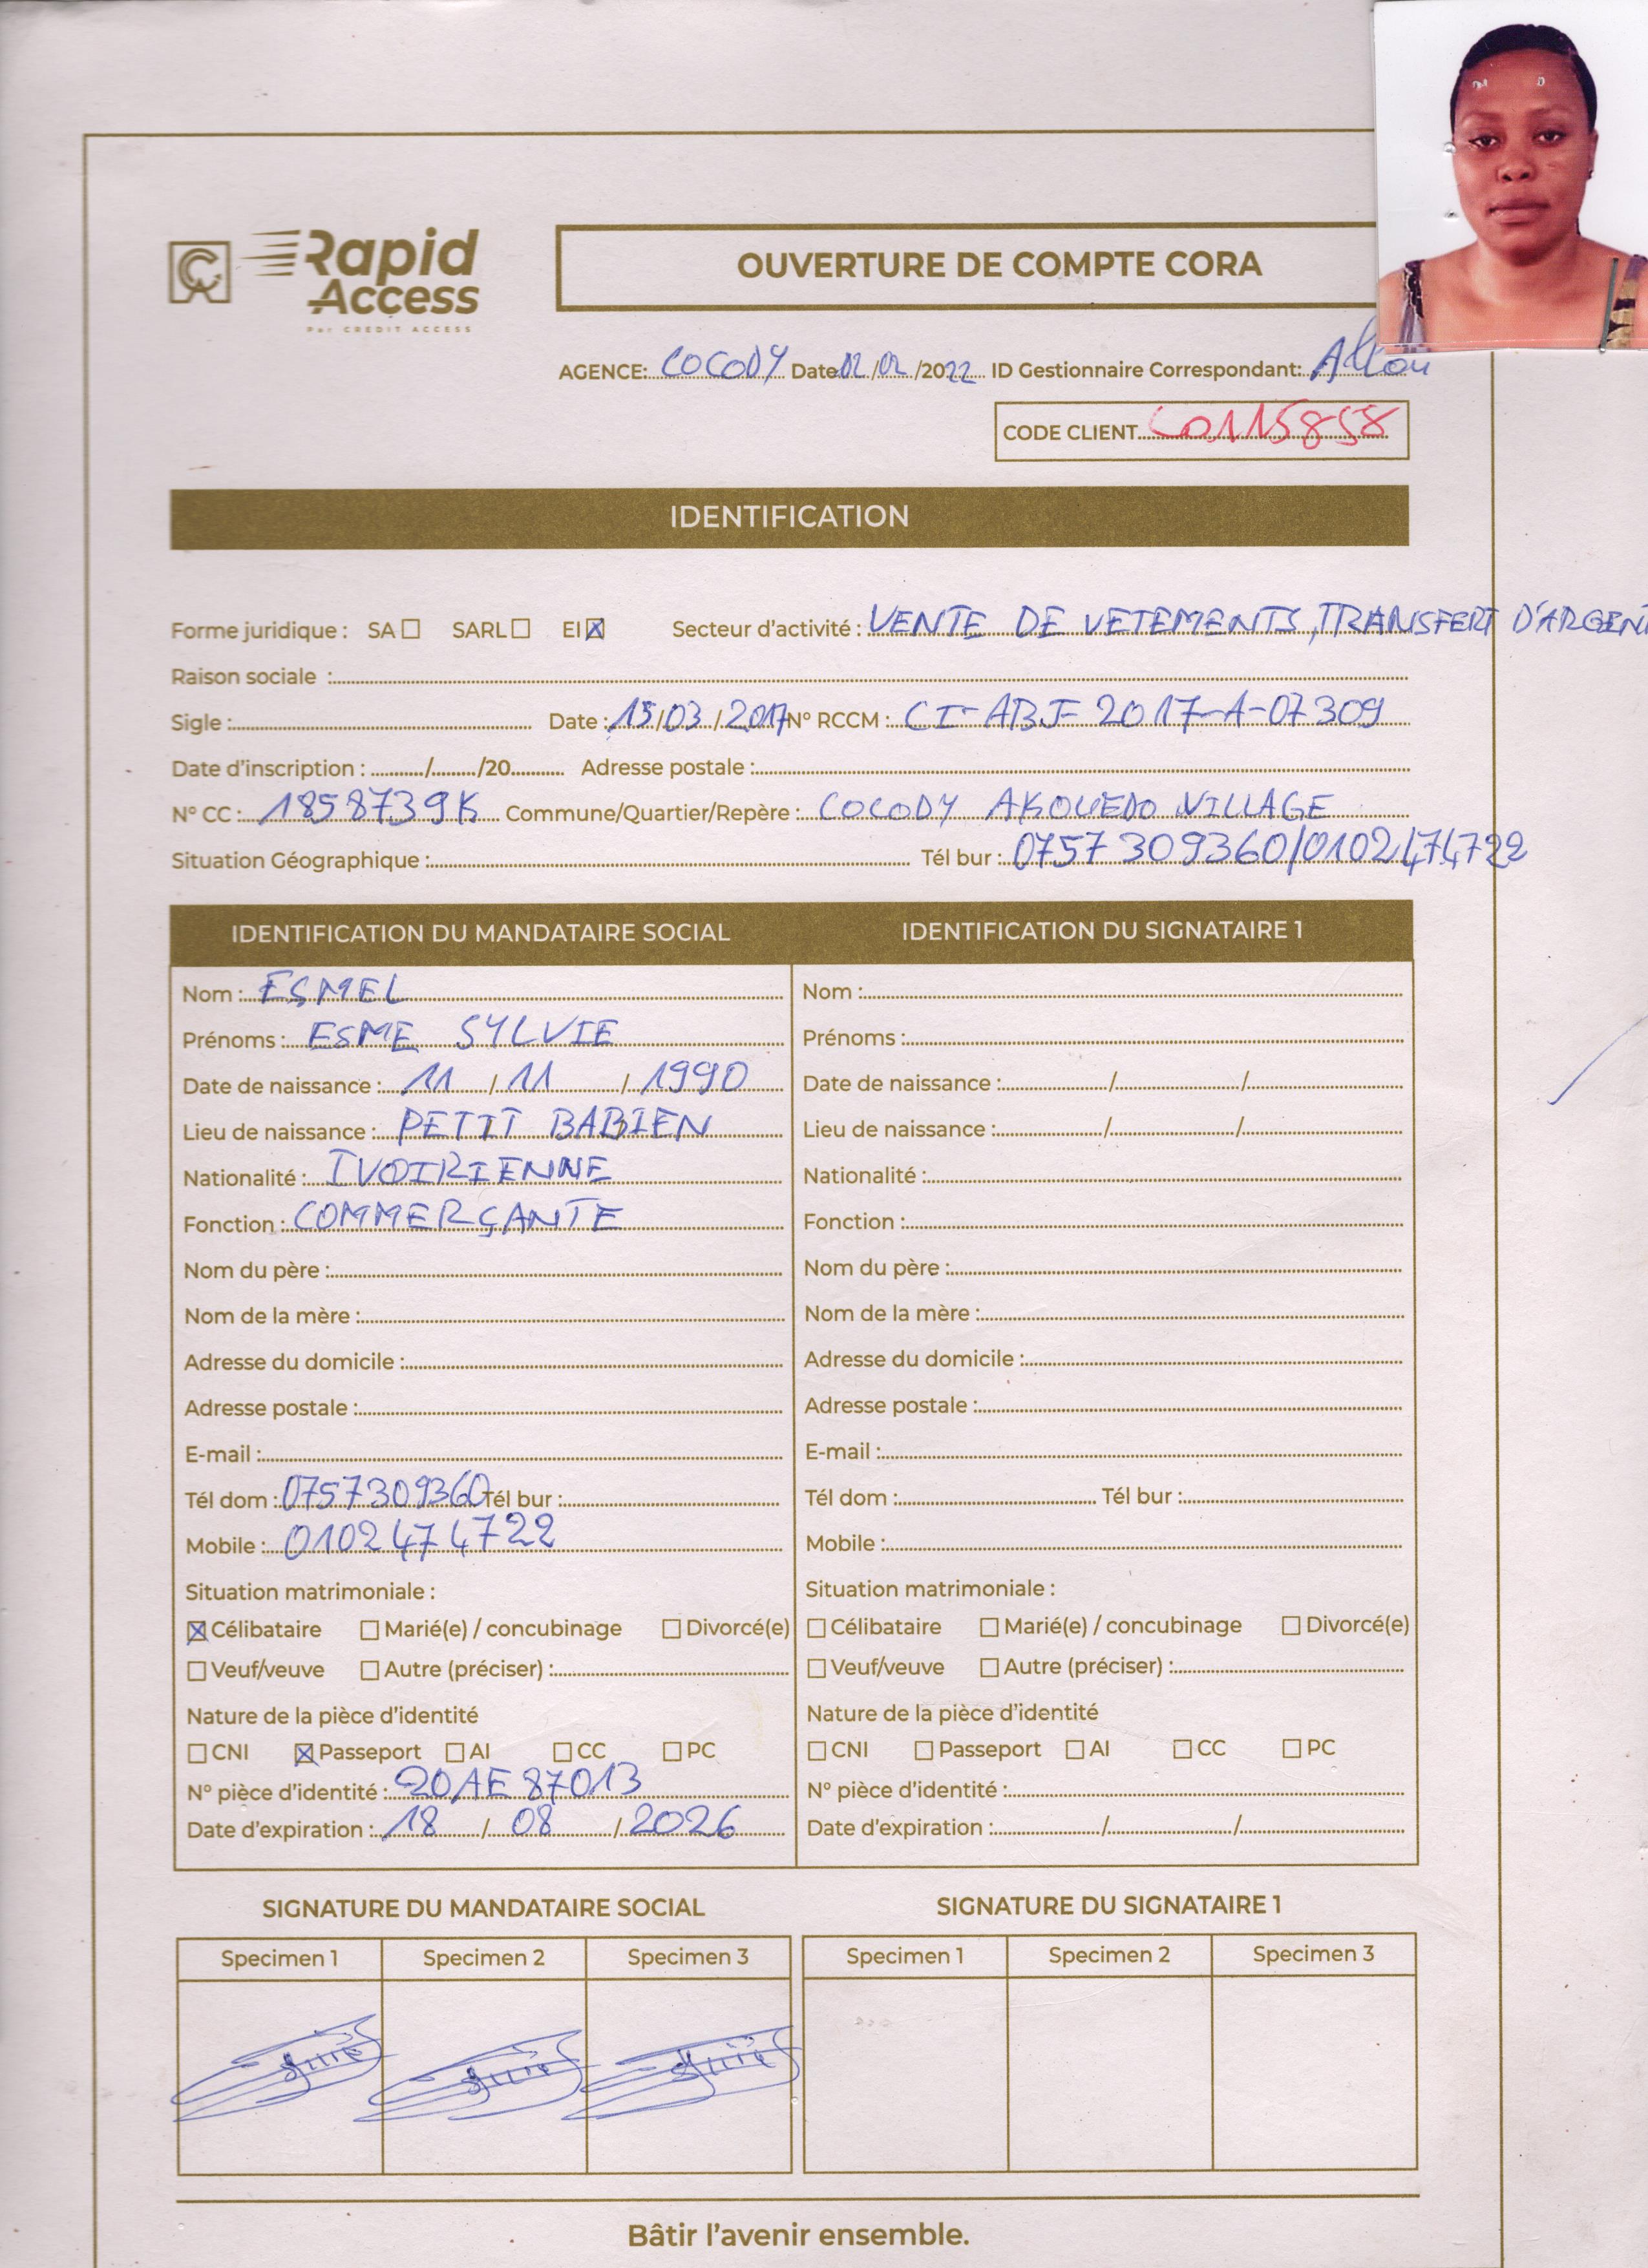 Rapid
Access
Par CREDIT ACCESS
OUVERTURE DE COMPTE CORA
AGENCE: COCODY Date 02/02/2022 ID Gestionnaire Correspondant: Allou
CODE CLIENT C0115858
IDENTIFICATION
Forme juridique : SA SARL EI Secteur d'activité : VENTE DE VETEMENTS, TRANSFERT D'ARGENT
Raison sociale :
Sigle : Date : 15/03/2017 N° RCCM : CI-ABJ-2017-A-07309
Date d'inscription : / /20 Adresse postale :
N° CC : 1858739K Commune/Quartier/Repère : COCODY AKOUEDO VILLAGE
Situation Géographique : Tél bur : 0757309360/0102474722
IDENTIFICATION DU MANDATAIRE SOCIAL
Nom : ESMEL
Prénoms : ESME SYLVIE
Date de naissance : 11 / 11 / 1990
Lieu de naissance : PETIT BABIEN
Nationalité : IVOIRIENNE
Fonction : COMMERÇANTE
Nom du père :
Nom de la mère :
Adresse du domicile :
Adresse postale :
E-mail :
Tél dom : 0757309360 Tél bur :
Mobile : 0102474722
Situation matrimoniale :
Célibataire Marié(e) / concubinage Divorcé(e)
Veuf/veuve Autre (préciser) :
Nature de la pièce d'identité
CNI Passeport AI CC PC
N° pièce d'identité : 20AE87013
Date d'expiration : 18 / 08 / 2026
IDENTIFICATION DU SIGNATAIRE 1
Nom :
Prénoms :
Date de naissance : / /
Lieu de naissance : / /
Nationalité :
Fonction :
Nom du père :
Nom de la mère :
Adresse du domicile :
Adresse postale :
E-mail :
Tél dom : Tél bur :
Mobile :
Situation matrimoniale :
Célibataire Marié(e) / concubinage Divorcé(e)
Veuf/veuve Autre (préciser) :
Nature de la pièce d'identité
CNI Passeport AI CC PC
N° pièce d'identité :
Date d'expiration : / /
SIGNATURE DU MANDATAIRE SOCIAL
Specimen 1 Specimen 2 Specimen 3
SIGNATURE DU SIGNATAIRE 1
Specimen 1 Specimen 2 Specimen 3
Bâtir l'avenir ensemble.